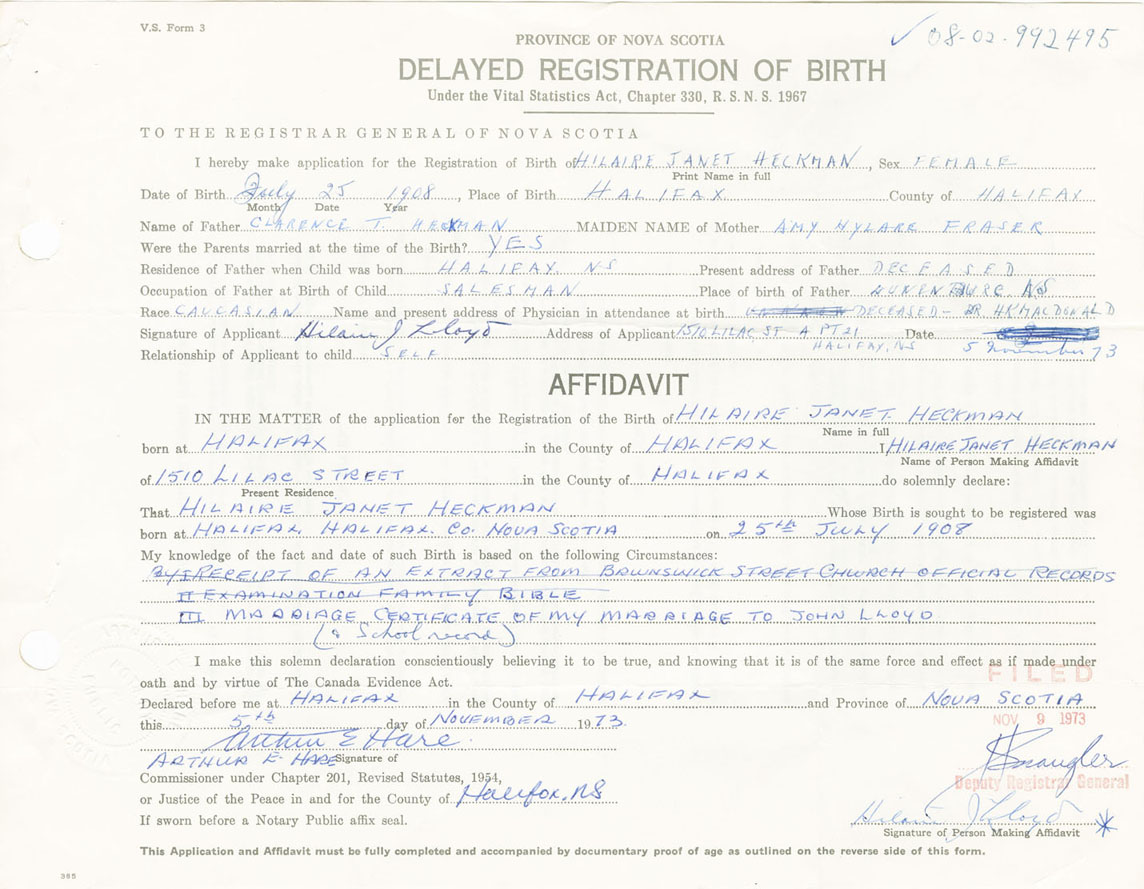 V.S. Form 3
✓ 08-02-992495
PROVINCE OF NOVA SCOTIA
DELAYED REGISTRATION OF BIRTH
Under the Vital Statistics Act, Chapter 330, R. S. N. S. 1967
TO THE REGISTRAR GENERAL OF NOVA SCOTIA
I hereby make application for the Registration of Birth of HILAIRE JANET HECKMAN, Sex FEMALE
Print Name in full
Date of Birth July 25 1908, Place of Birth HALIFAX County of HALIFAX
Month Date Year
Name of Father CLARENCE T. HECKMAN MAIDEN NAME of Mother AMY HYLARE FRASER
Were the Parents married at the time of the Birth? YES
Residence of Father when Child was born HALIFAX NS Present address of Father DECEASED
Occupation of Father at Birth of Child SALESMAN Place of birth of Father NS
Race CAUCASIAN Name and present address of Physician in attendance at birth DECEASED - DR. HK MACDONALD
Signature of Applicant Hilaire J Lloyd Address of Applicant 1510 LILAC ST APT 21 Date
HALIFAX, NS 5 November 73
Relationship of Applicant to child SELF
AFFIDAVIT
IN THE MATTER of the application for the Registration of the Birth of HILAIRE JANET HECKMAN
Name in full
born at HALIFAX in the County of HALIFAX I HILAIRE JANET HECKMAN
Name of Person Making Affidavit
of 1510 LILAC STREET in the County of HALIFAX do solemnly declare:
Present Residence
That HILAIRE JANET HECKMAN Whose Birth is sought to be registered was
born at HALIFAX, HALIFAX CO. NOVA SCOTIA on 25th JULY 1908
My knowledge of the fact and date of such Birth is based on the following Circumstances:
BY I RECEIPT OF AN EXTRACT FROM BRUNSWICK STREET CHURCH OFFICIAL RECORDS
II EXAMINATION FAMILY BIBLE
III MARRIAGE CERTIFICATE OF MY MARRIAGE TO JOHN LLOYD
(& School record)
I make this solemn declaration conscientiously believing it to be true, and knowing that it is of the same force and effect as if made under
oath and by virtue of The Canada Evidence Act.
FILED
Declared before me at HALIFAX in the County of HALIFAX and Province of NOVA SCOTIA
this 5th day of NOVEMBER 1973.
NOV 9 1973
Arthur E Hare
ARTHUR E. HARE Signature of
Commissioner under Chapter 201, Revised Statutes, 1954,
Deputy Registrar General
or Justice of the Peace in and for the County of Halifax, NS
Hilaire J Lloyd *
If sworn before a Notary Public affix seal.
Signature of Person Making Affidavit
This Application and Affidavit must be fully completed and accompanied by documentary proof of age as outlined on the reverse side of this form.
385